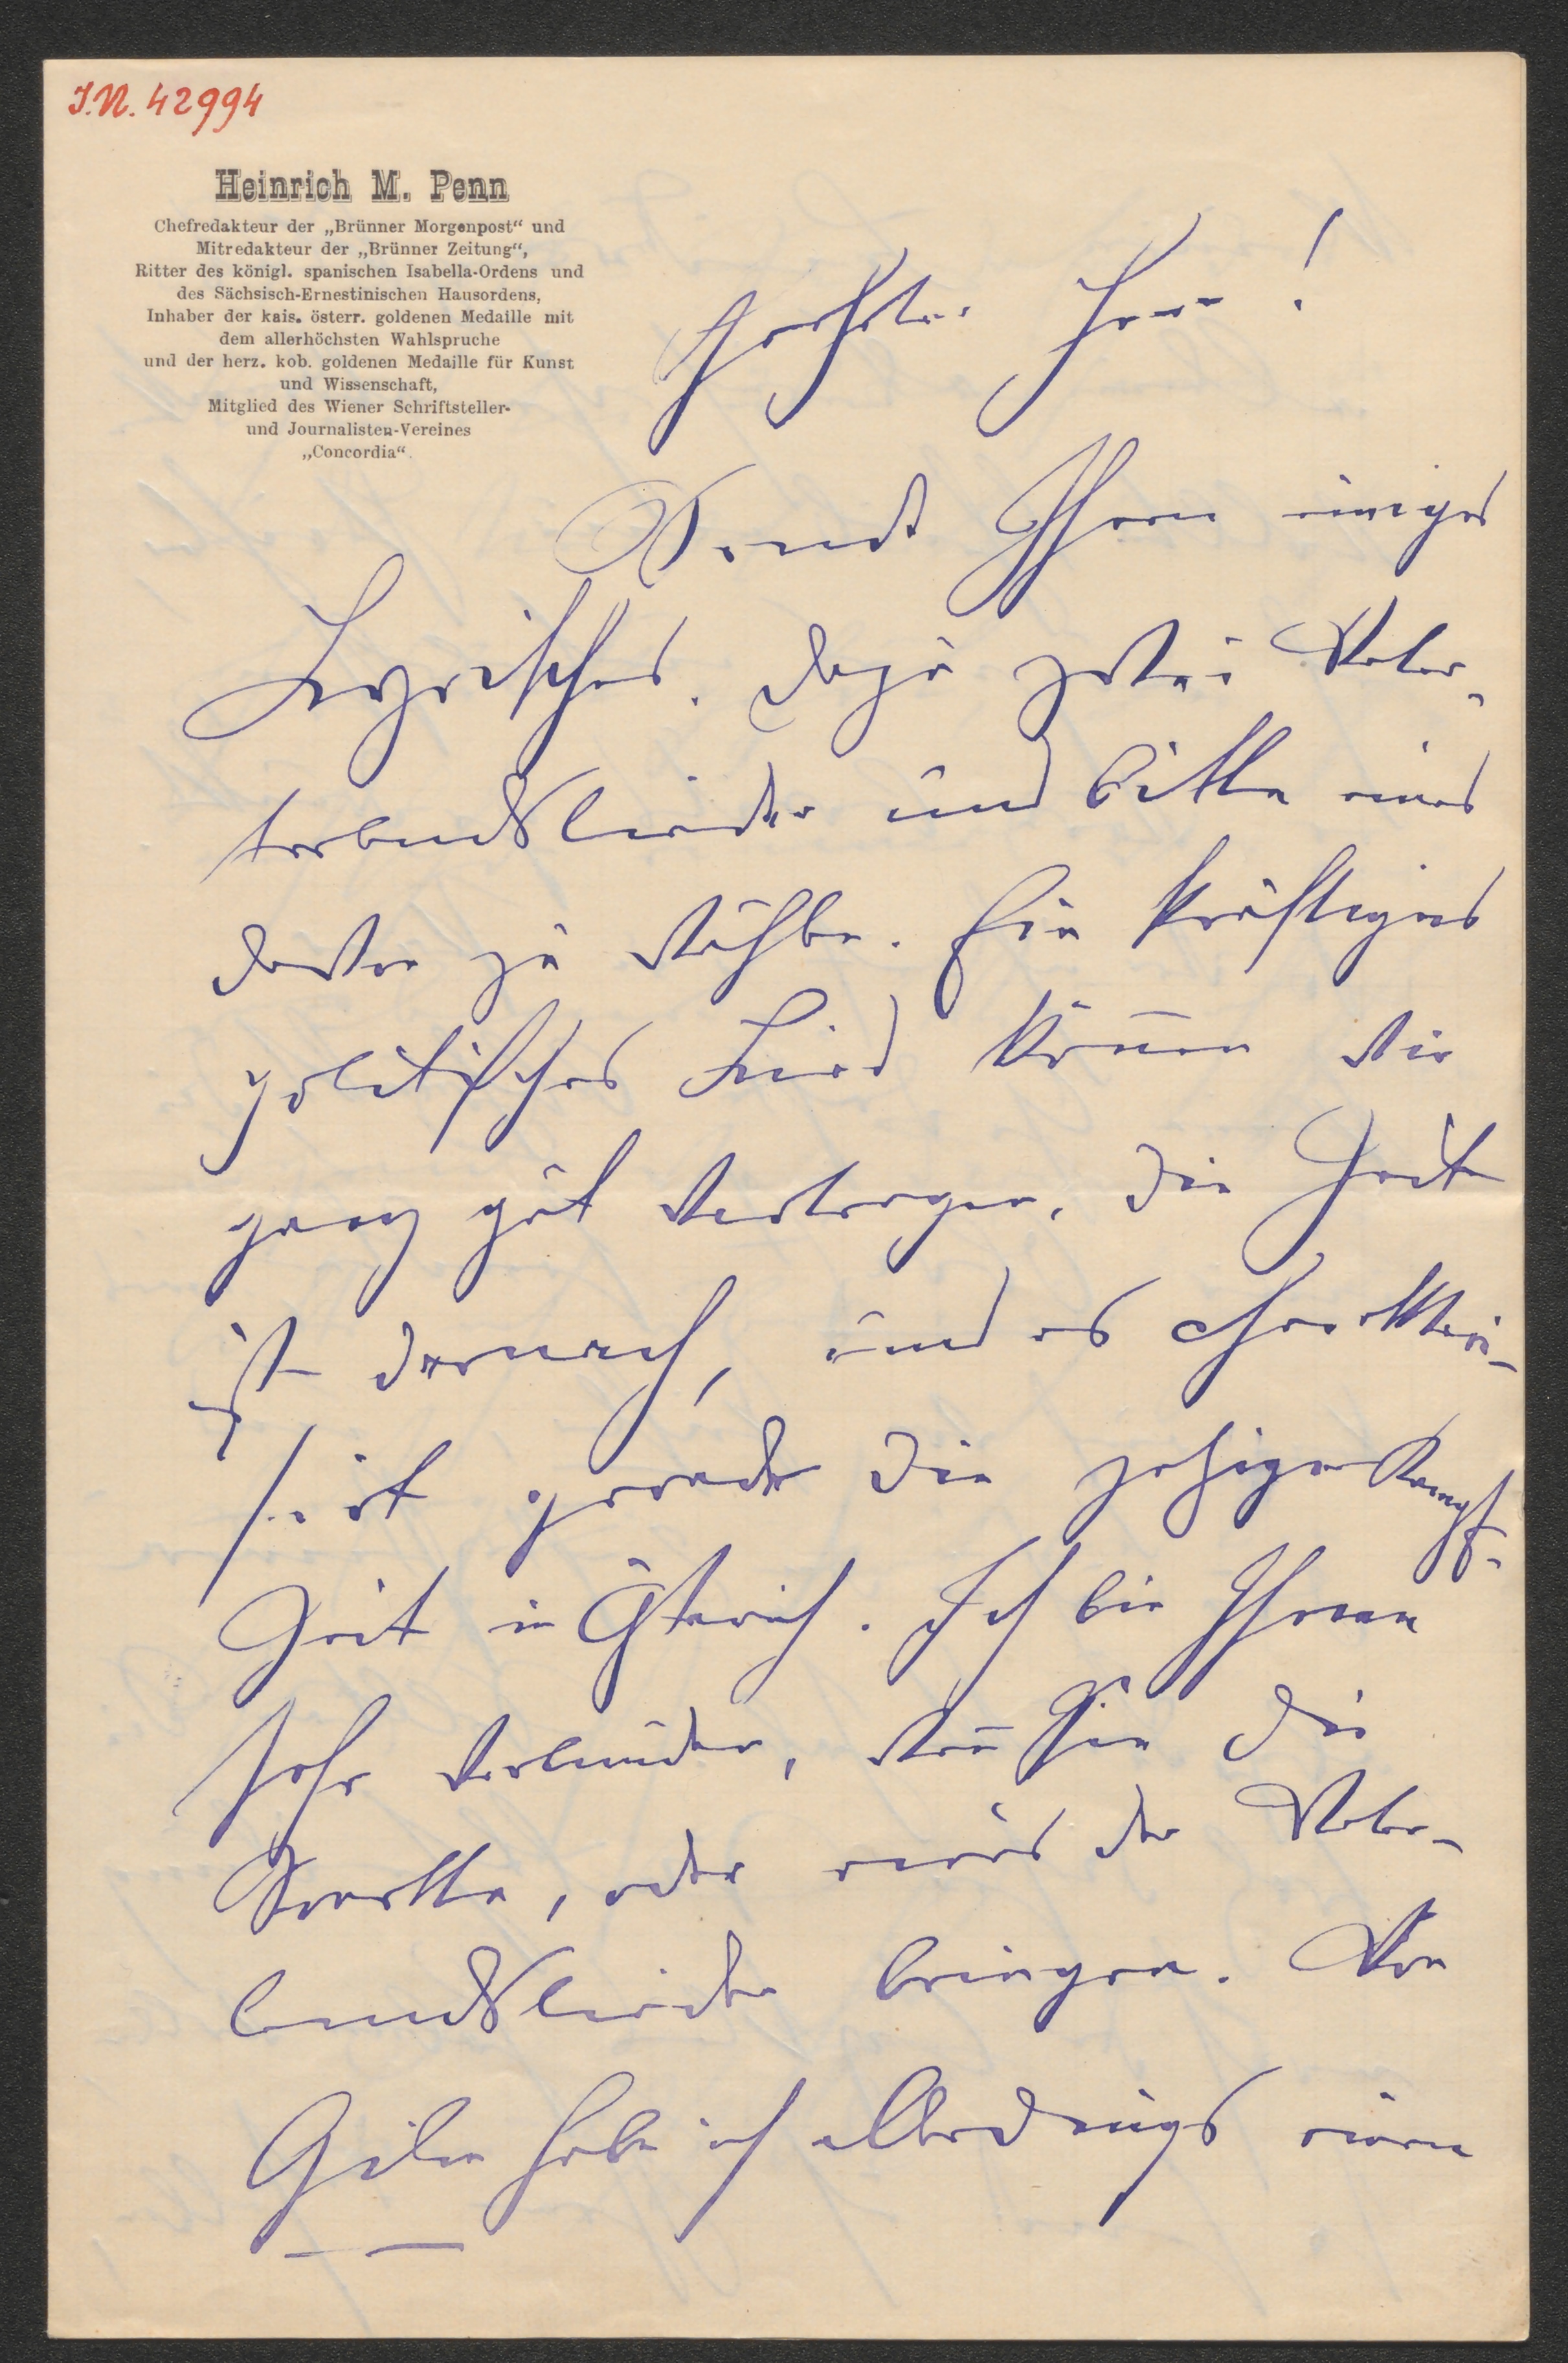 I.N. 42994
Heinrich M. Penn
Chefredakteur der „Brünner Morgenpost“ und
Mitredakteur der „Brünner Zeitung“,
Ritter des königl. spanischen Isabella-Ordens und
des Sächsisch-Ernestinischen Hausordens,
Inhaber der kais. österr. goldenen Medaille mit
dem allerhöchsten Wahlspruche
und der herz. kob. goldenen Medaille für Kunst
und Wissenschaft,
Mitglied des Wiener Schriftsteller-
und Journalisten-Vereines
„Concordia“.
Geehrter Herr!
Sende Ihnen einiges
Lyrisches. Dazu zwei Vater-
landslieder und bitte eines
davon zu wählen. Ein kräftiges
politisches Lied können wir
ganz gut vertragen, die Zeit
ist darnach, und es charakteri-
sirt gerade die jetzige Kampf-
Zeit in Österreich. Ich bin Ihnen
sehr verbunden, wenn Sie die
oder eines der Vater-
landslieder bringen. Von
habe ich allerdings einen